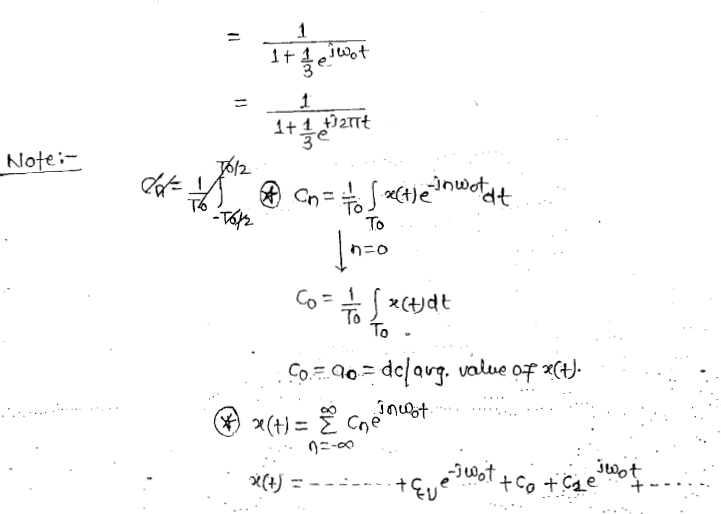 = 1 / (1 + 1/3 e^{jω₀t})
= 1 / (1 + 1/3 e^{+j2πt})
Note:-
⊛ Cn = 1/T₀ ∫_{T₀} x(t) e^{-jnω₀t} dt
↓ n=0
C₀ = 1/T₀ ∫_{T₀} x(t) dt
C₀ = a₀ = dc/avg. value of x(t).
⊛ x(t) = Σ_{n=-∞}^{∞} Cn e^{jnω₀t}
x(t) = -------- + C₋₁ e^{-jω₀t} + C₀ + C₁ e^{jω₀t} + -----